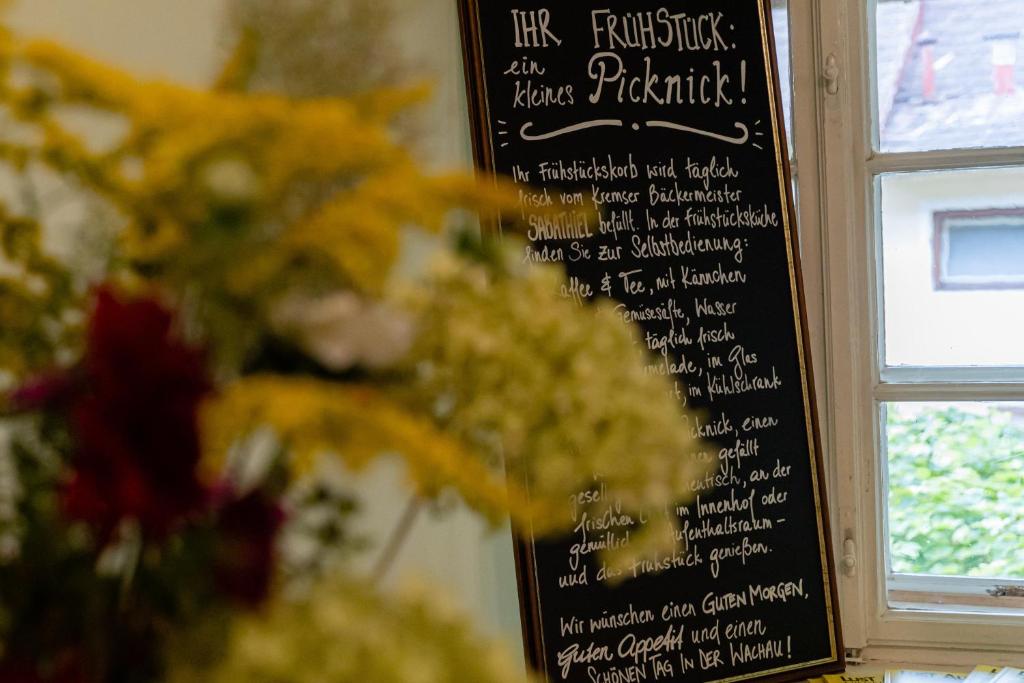 IHR FRÜHSTÜCK:
ein
kleines Picknick!
Ihr Frühstückskorb wird täglich
frisch vom Kremser Bäckermeister
SABATHIEL befüllt. In der Frühstücksküche
finden Sie zur Selbstbedienung:
Kaffee & Tee, mit Kännchen
Gemüsesäfte, Wasser
täglich frisch
im Glas
im Kühlschrank
einen
gefällt
an der
frischen im Innenhof oder
gemütlich
und das Frühstück genießen.
Wir wünschen einen GUTEN MORGEN,
Guten Appetit und einen
SCHÖNEN TAG IN DER WACHAU!